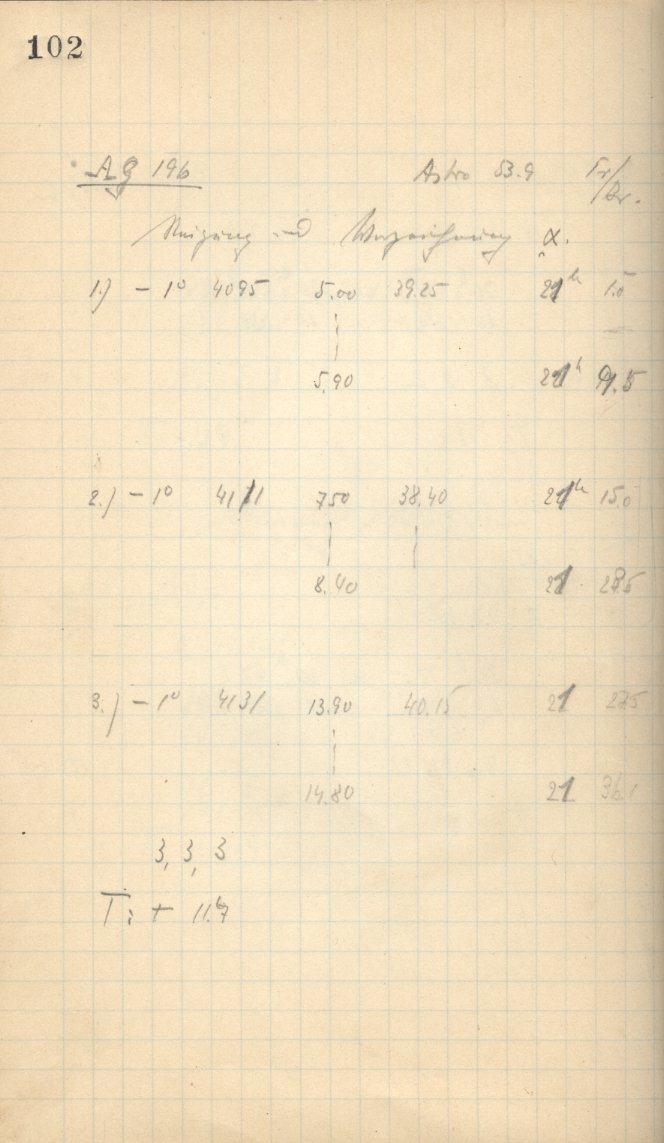 102
AG 196 Astro 53.9 Fr/
Dr.
Neigung und Verzeichnung α.
1.) – 1° 4095 5.00 39.25 21h 1.5
5.90 21h
2.) – 1° 4111 7.50 38.40 21h 15.0
8.40 21 28.5
3.) – 1° 4131 13.90 40.15 21 27.5
14.80 21
3, 3, 3
T: +